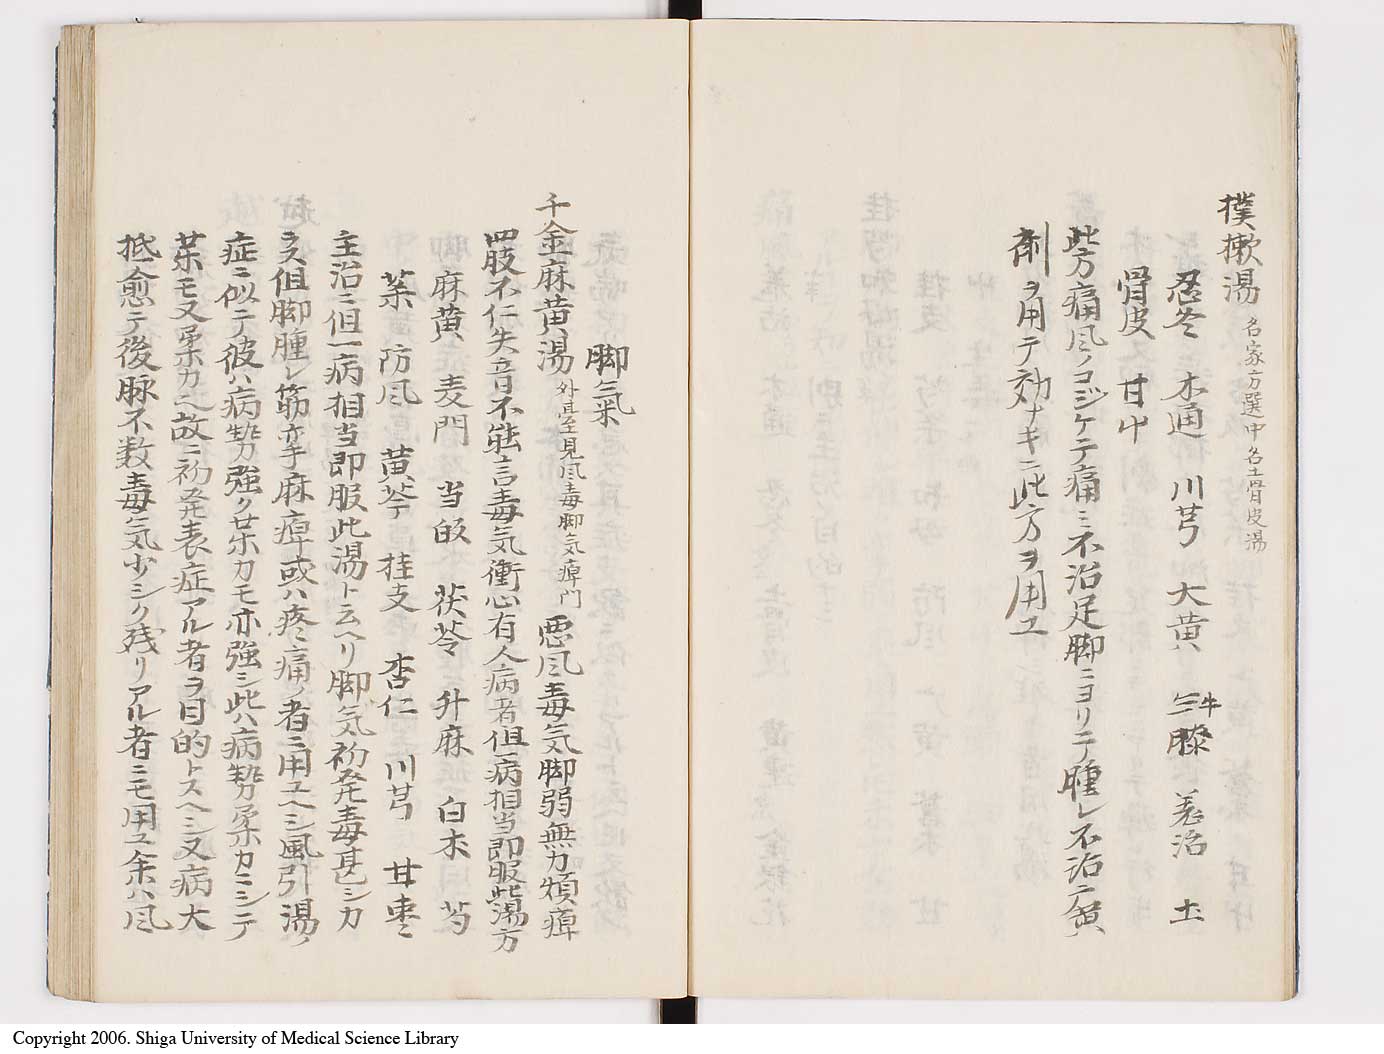 撲樕湯 名家方選中名土骨皮湯
忍冬 木通 川芎 大黄 牛膝 羗活 土
骨皮 甘艸
此方痛風ノコジケテ痛ミ不治足脚ニヨリテ腫レ不治ニ黄
剤ヲ用テ効ナキニ此方ヲ用ユ
脚氣
千金麻黄湯 外甚至見風毒脚気痺門 悪風毒気脚弱無力頑痺
四肢不仁失音不能言毒気衝心有人病者但一病相当即服此湯方
麻黄 麦門 当皈 茯苓 升麻 白朮 芍
薬 防風 黄芩 桂支 杏仁 川芎 甘枣
主治ニ但一病相当即服此湯ト云ヘリ脚気初発毒甚シカ
ラズ但脚腫レ筋攣麻痺或ハ疼痛ノ者ニ用ユヘシ風引湯ノ
症ニ似テ彼ハ病勢強ク薬力モ亦強シ此ハ病勢柔カニシテ
薬モ又柔カ也故ニ初発表症アル者ヲ目的トスヘシ又病大
抵愈テ後脉不数毒気少シク残リアル者ニモ用ユ余ハ風
Copyright 2006. Shiga University of Medical Science Library